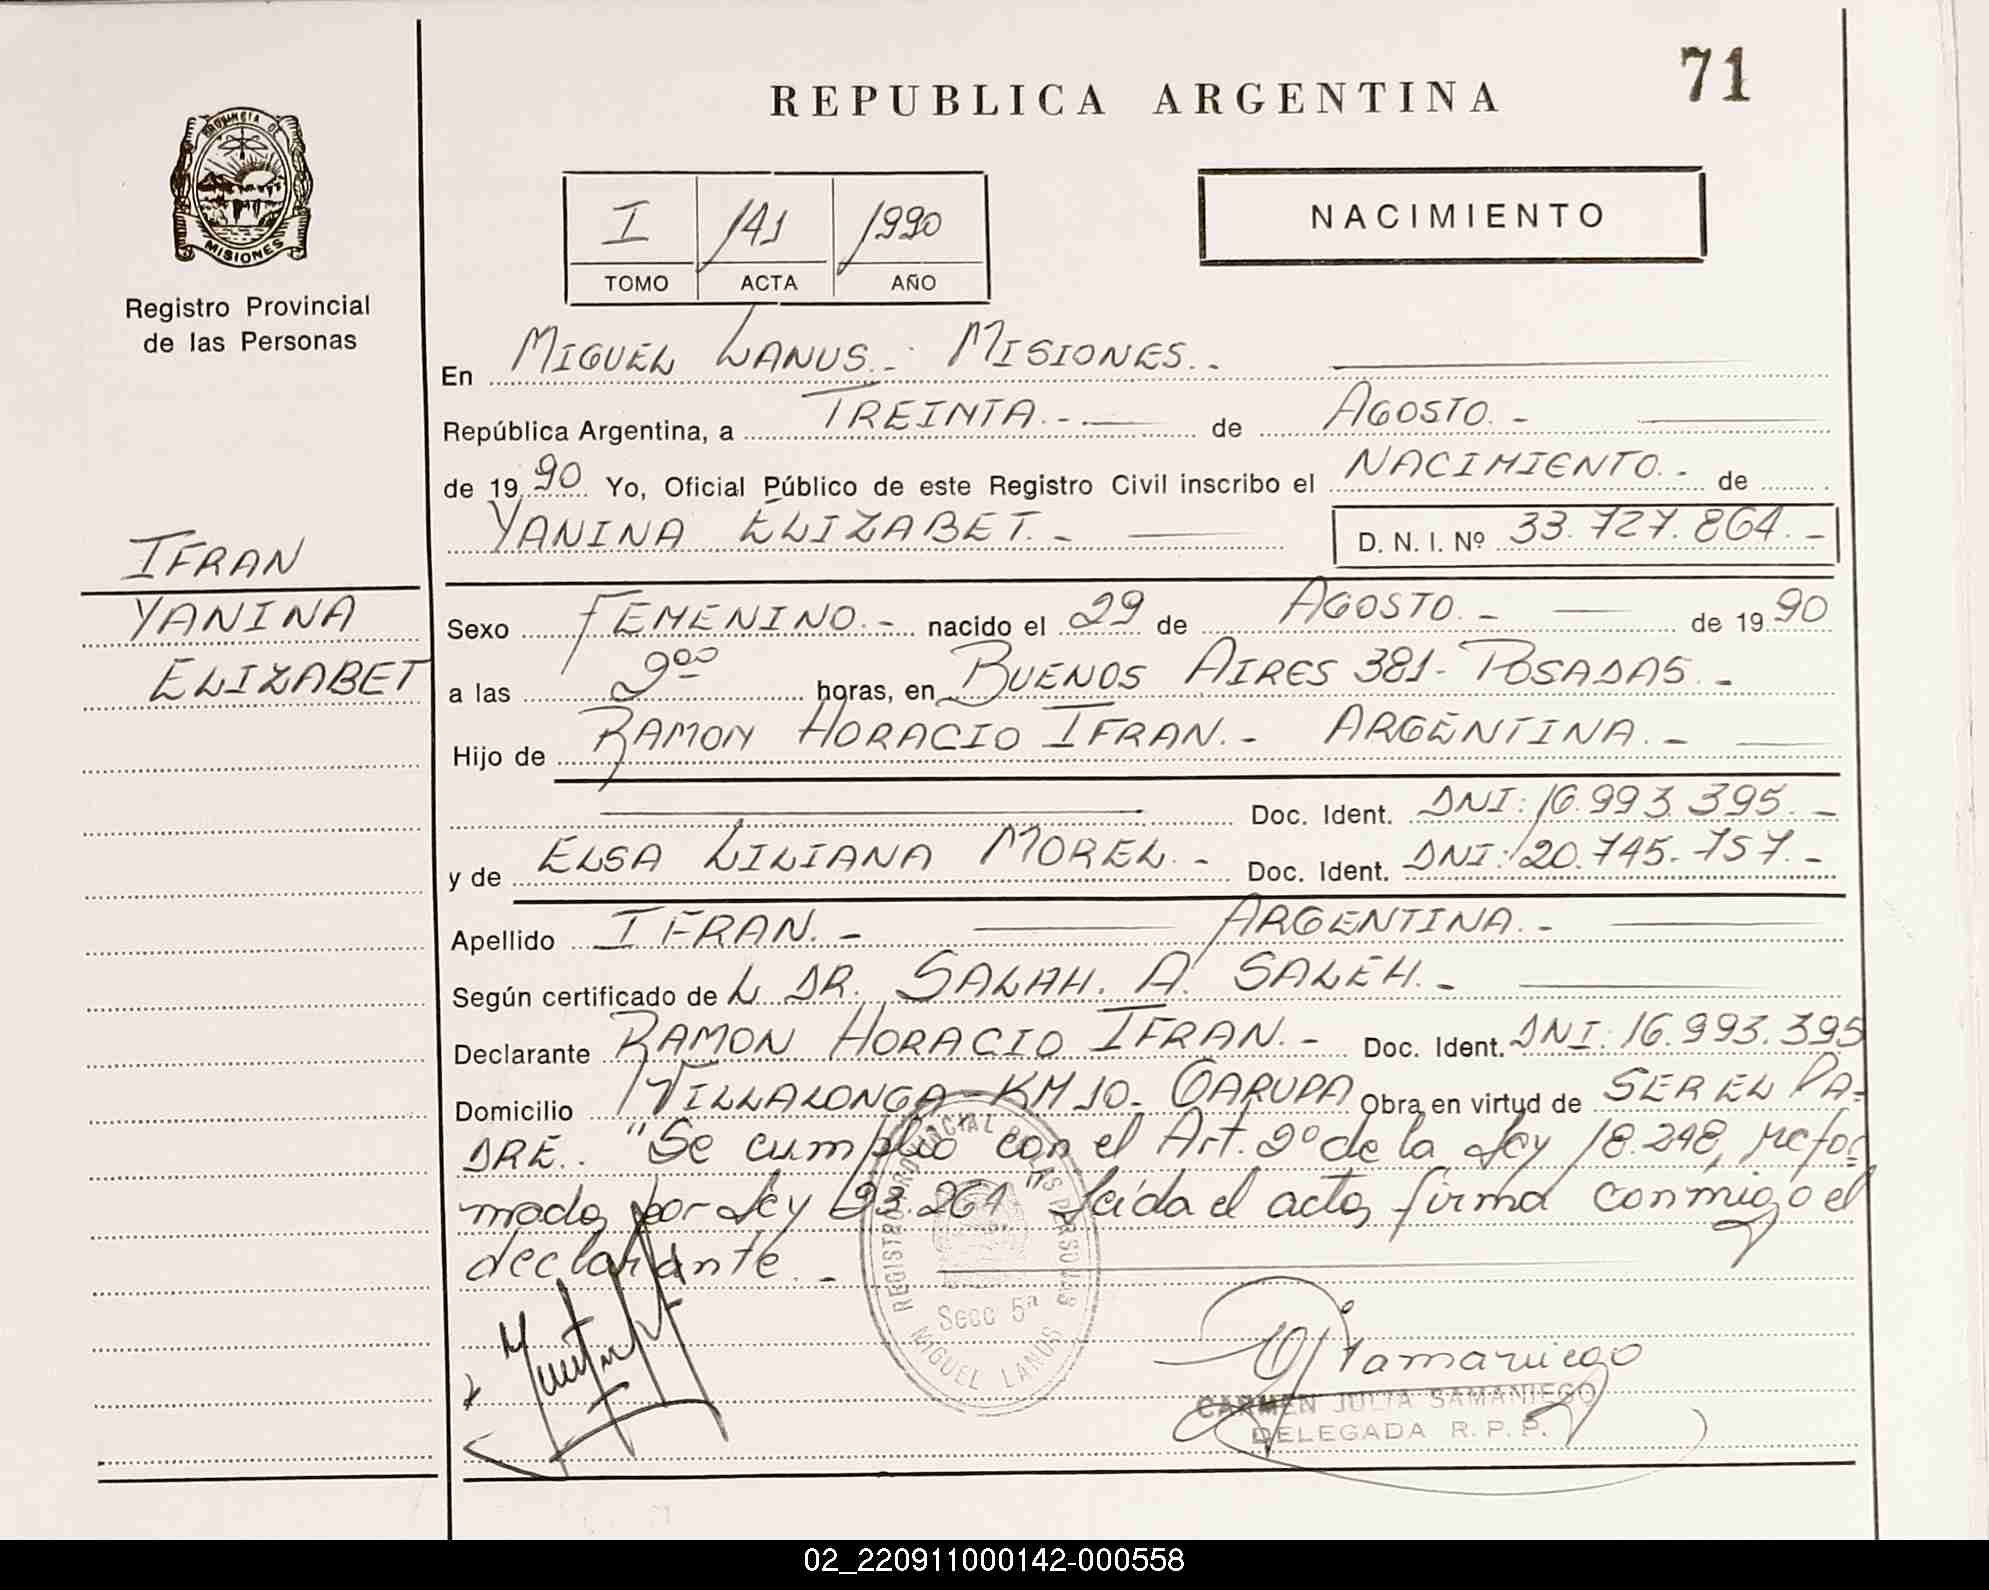 71
REPUBLICA ARGENTINA
PROVINCIA DE
MISIONES
Registro Provincial
de las Personas
I 141 1990
TOMO ACTA AÑO
NACIMIENTO
En MIGUEL LANUS.- MISIONES.-
República Argentina, a TREINTA.- de AGOSTO.-
de 1990 Yo, Oficial Público de este Registro Civil inscribo el NACIMIENTO.- de
YANINA ELIZABET.- D. N. I. Nº 33.727.864.-
IFRAN
YANINA
ELIZABET
Sexo FEMENINO.- nacido el 29 de AGOSTO.- de 1990
a las 9⁰⁰ horas, en BUENOS AIRES 381- POSADAS.-
Hijo de RAMON HORACIO IFRAN.- ARGENTINA.-
Doc. Ident. DNI: 16.993.395.-
y de ELSA LILIANA MOREL.- Doc. Ident. DNI: 20.745.757.-
Apellido IFRAN.- ARGENTINA.-
Según certificado de L DR. SALAH. A. SALEH.-
Declarante RAMON HORACIO IFRAN.- Doc. Ident. DNI: 16.993.395
Domicilio VILLALONGA-KM 10- GARUPA Obra en virtud de SER EL PA-
DRE.. "Se cumplió con el Art. 2º de la Ley 18.248, refor-
mada por Ley 23.264" Leída el acta, firma conmigo el
declarante.-
REGISTRO PROVINCIAL DE LAS PERSONAS
Secc 5ª
MIGUEL LANUS
CARMEN JULIA SAMANIEGO
DELEGADA R. P. P.
02_220911000142-000558